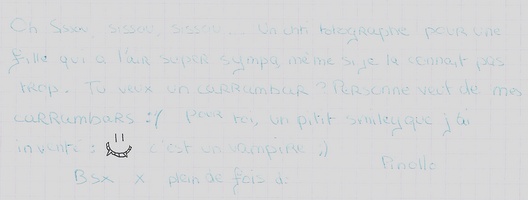 Oh Sissou, sissou, sissou.... Un autographe pour une
fille qui a l'air super sympa, même si je la connait pas
trop. Tu veux un CARRUMBAR ? Personne veut de mes
CARRUMBARS :'( pour toi, un ptit smiley que j'ai
inventé : c'est un vampire ;)
Bsx x plein de fois